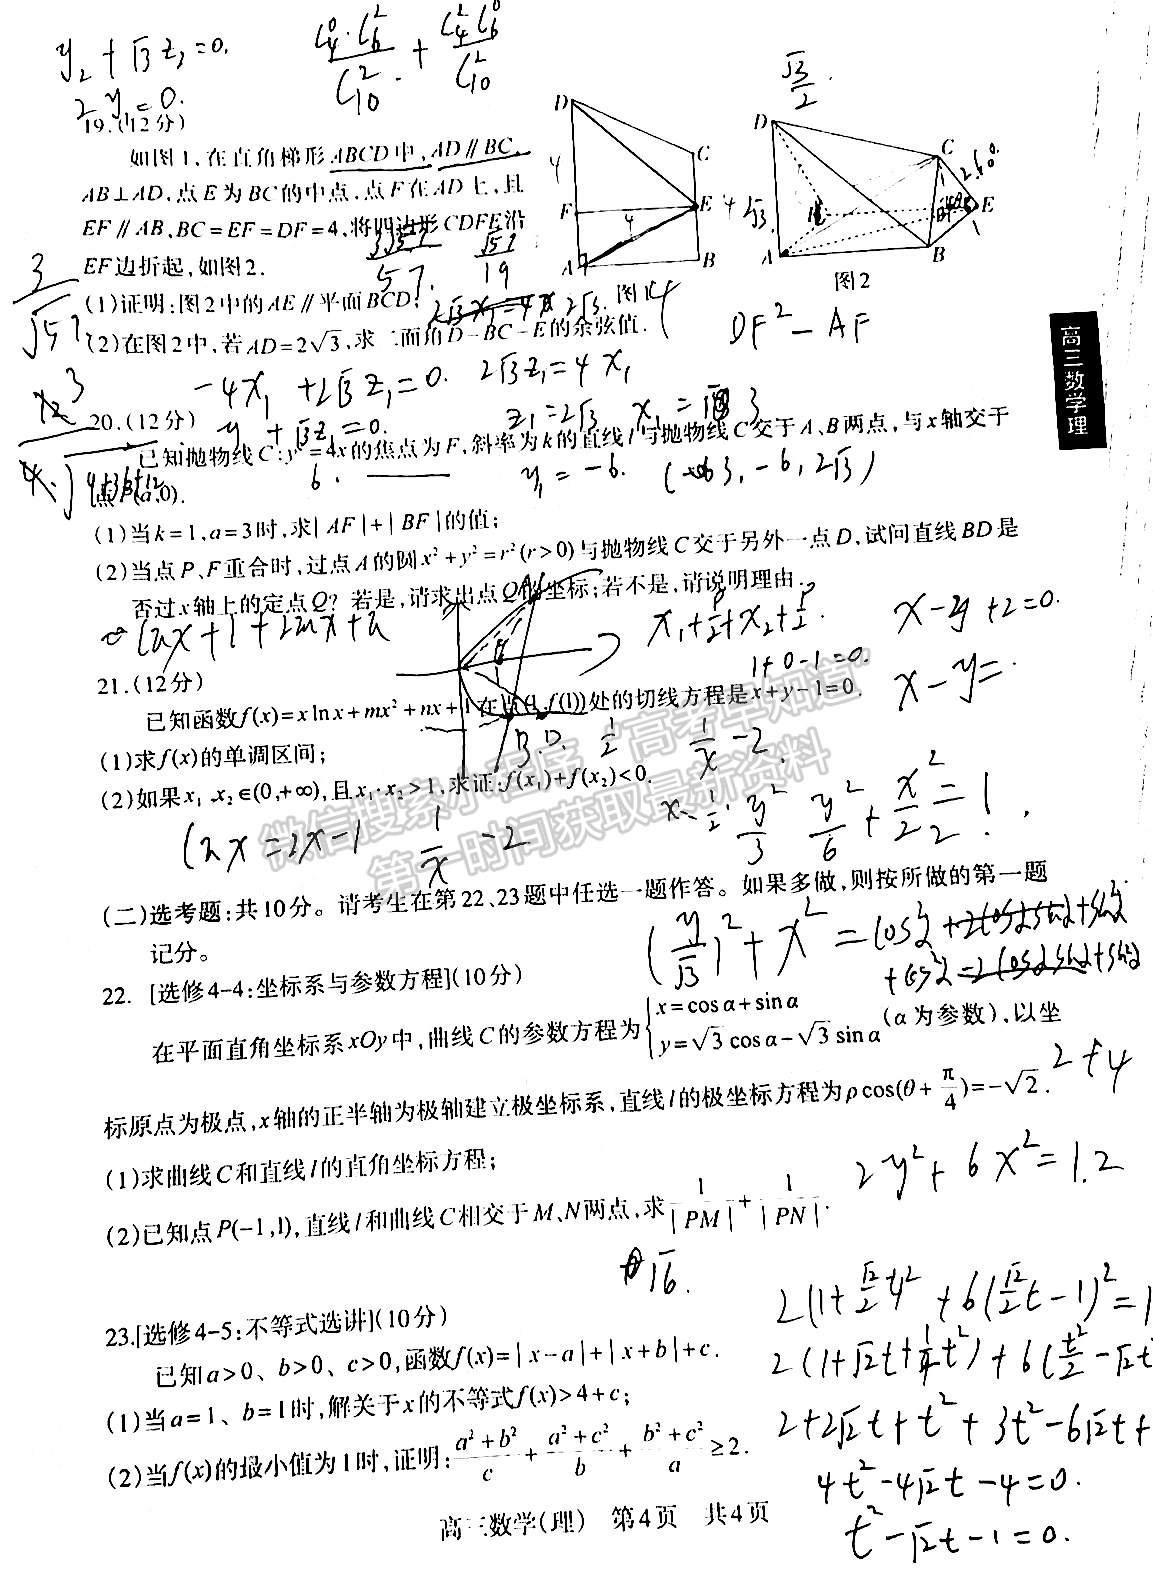 y₂+√3z₁=0.
2y₁=0.
19.(12分)
如图1,在直角梯形ABCD中,AD∥BC,
AB⊥AD,点E为BC的中点,点F在AD上,且
EF∥AB,BC=EF=DF=4,将四边形CDFE沿
EF边折起,如图2.
(1)证明:图2中的AE∥平面BCD;
(2)在图2中,若AD=2√3,求二面角D-BC-E的余弦值.
D
C
F
E
A
B
4
4
图1
√3/2
D
C
E
A
B
2√3
图2
DF²-AF
-4x₁+2√3z₁=0. 2√3z₁=4x₁
z₁=2√3 x₁=3
y+√3z=0.
y₁=-6. (3,-6,2√3)
高三数学理
20.(12分)
已知抛物线C:y²=4x的焦点为F,斜率为k的直线l与抛物线C交于A、B两点,与x轴交于
点P(a,0).
(1)当k=1,a=3时,求|AF|+|BF|的值;
(2)当点P、F重合时,过点A的圆x²+y²=r²(r>0)与抛物线C交于另外一点D,试问直线BD是
否过x轴上的定点Q?若是,请求出点Q的坐标;若不是,请说明理由.
x₁+p/2+x₂+p/2.
x-y+2=0.
1+0-1=0.
x-y=.
21.(12分)
已知函数f(x)=xlnx+mx²+nx+1在点(1,f(1))处的切线方程是x+y-1=0.
(1)求f(x)的单调区间;
(2)如果x₁、x₂∈(0,+∞),且x₁·x₂>1,求证:f(x₁)+f(x₂)<0.
微信搜索小程序“高考早知道”
第一时间获取最新资料
1/x-2
lnx=2x-1 1/x=2
y²/6+x²/2=1.
(二)选考题:共10分。请考生在第22、23题中任选一题作答。如果多做,则按所做的第一题
记分。
22. [选修4-4:坐标系与参数方程](10分)
在平面直角坐标系xOy中,曲线C的参数方程为{x=cosα+sinα y=√3cosα-√3sinα(α为参数),以坐
标原点为极点,x轴的正半轴为极轴建立极坐标系,直线l的极坐标方程为ρcos(θ+π/4)=-√2.
2+4
(1)求曲线C和直线l的直角坐标方程;
2y²+6x²=12
(2)已知点P(-1,1),直线l和曲线C相交于M、N两点,求1/|PM|+1/|PN|.
√6.
2(1+√2/2t)²+6(√2/2t-1)²=1
23.[选修4-5:不等式选讲](10分)
已知a>0、b>0、c>0,函数f(x)=|x-a|+|x+b|+c.
(1)当a=1、b=1时,解关于x的不等式f(x)>4+c;
2+2√2t+t²+3t²-6√2t+
(2)当f(x)的最小值为1时,证明:(a²+b²)/c+(a²+c²)/b+(b²+c²)/a≥2.
4t²-4√2t-4=0.
t²-√2t-1=0.
高三数学(理) 第4页 共4页